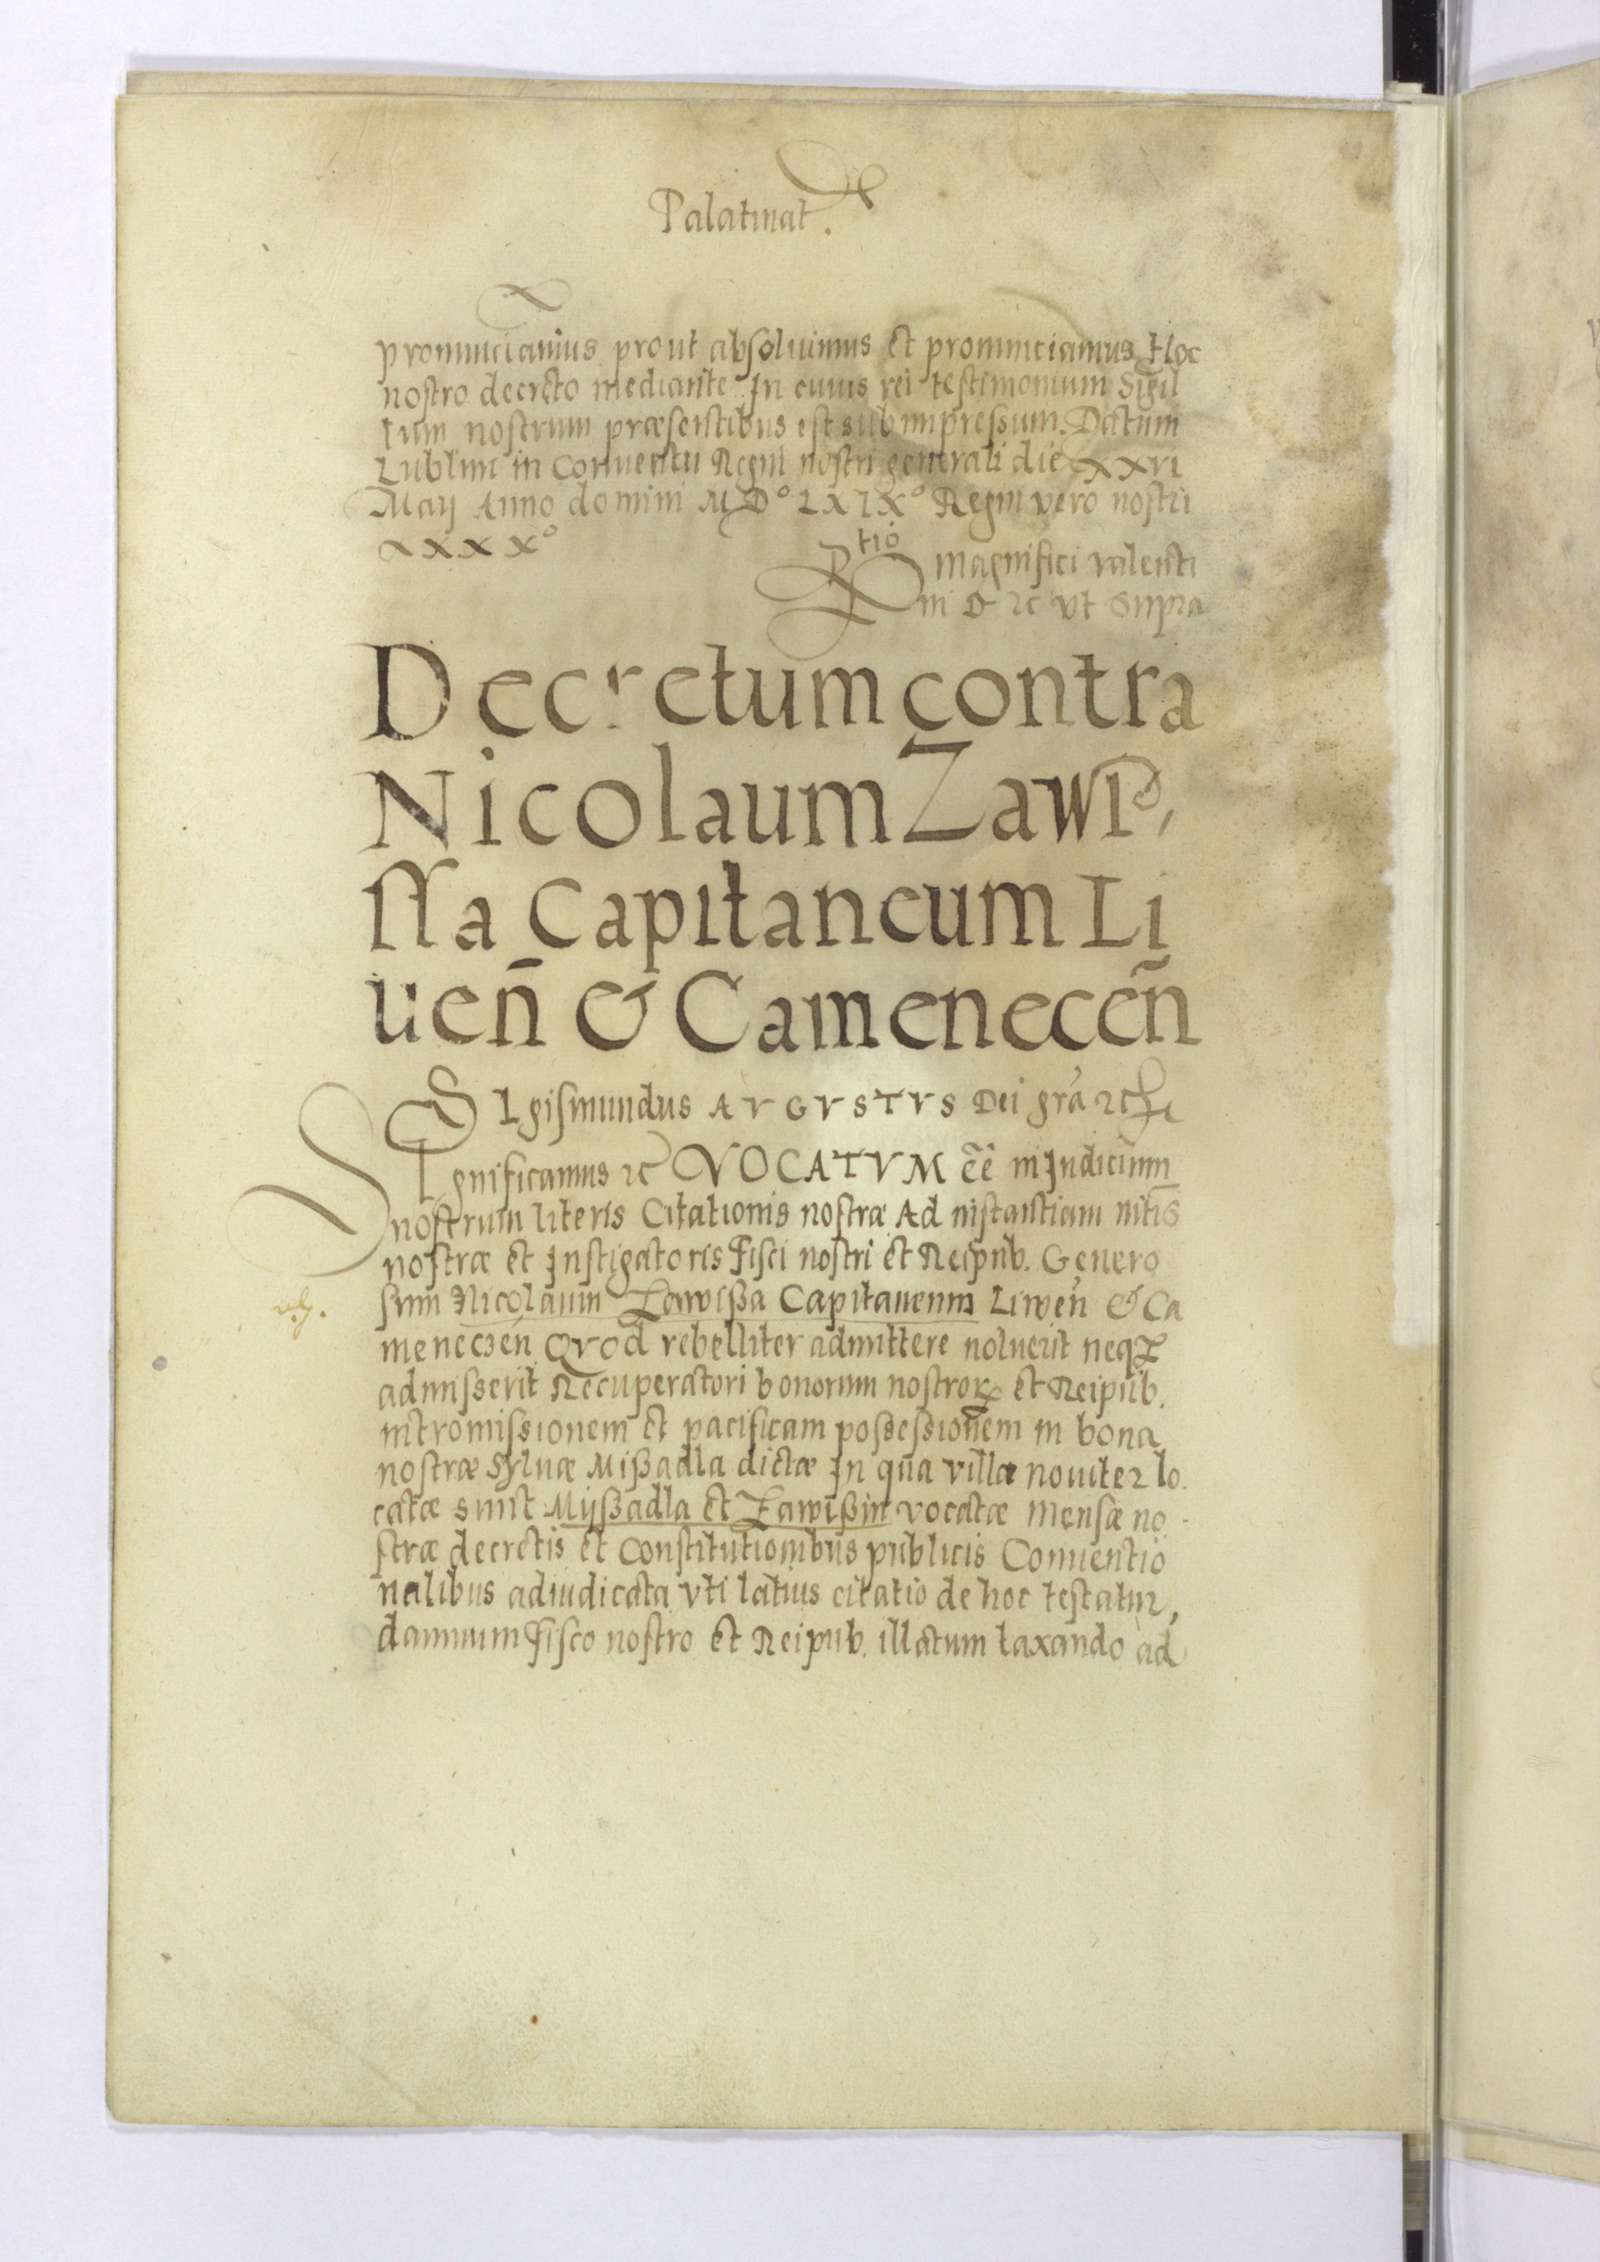 Palatinat.
pronunciamus prout absoluimus et pronunciamus Hoc
nostro decreto mediante In cuius rei testimonium Sigil
lum nostrum præsentibus est subimpressum. Datum
Lublini in Conuentu Regni nostri generali die XXVI
Maij Anno domini M D° LXIX° Regni vero nostri
XXXX°
Rtio magnifici valenti
ni D &c vt supra
Decretum contra
Nicolaum Zawi,
ssa Capitaneum Li
uen̄ & Camenecen̄
SIgismundus AVGVSTVS Dei gra̅ &c
SIgnificamus &c VOCATVM e̅e̅ in Judicium
nostrum literis Citationis nostræ Ad instantiam
nostræ et Instigatoris Fisci nostri et Reipub. Genero
sum Nicolaum Zawißa Capitaneum Liwen̄ & Ca
menecen̄ Qvod rebelliter admittere noluerit neqз
admisserit Recuperatori bonorum nostroꝝ et Reipub.
intromissionem et pacificam possessionem in bona
nostræ Syluæ Mißadla dictæ In qua villæ nouiter lo.
catæ sunt Mijßadla et Zawißin vocatæ Mensæ no
stræ decretis et Constitutionibus publicis Conuentio
nalibus adiudicata vti latius citatio de hoc testatur,
damnum Fisco nostro et Reipub. illatum taxando ad